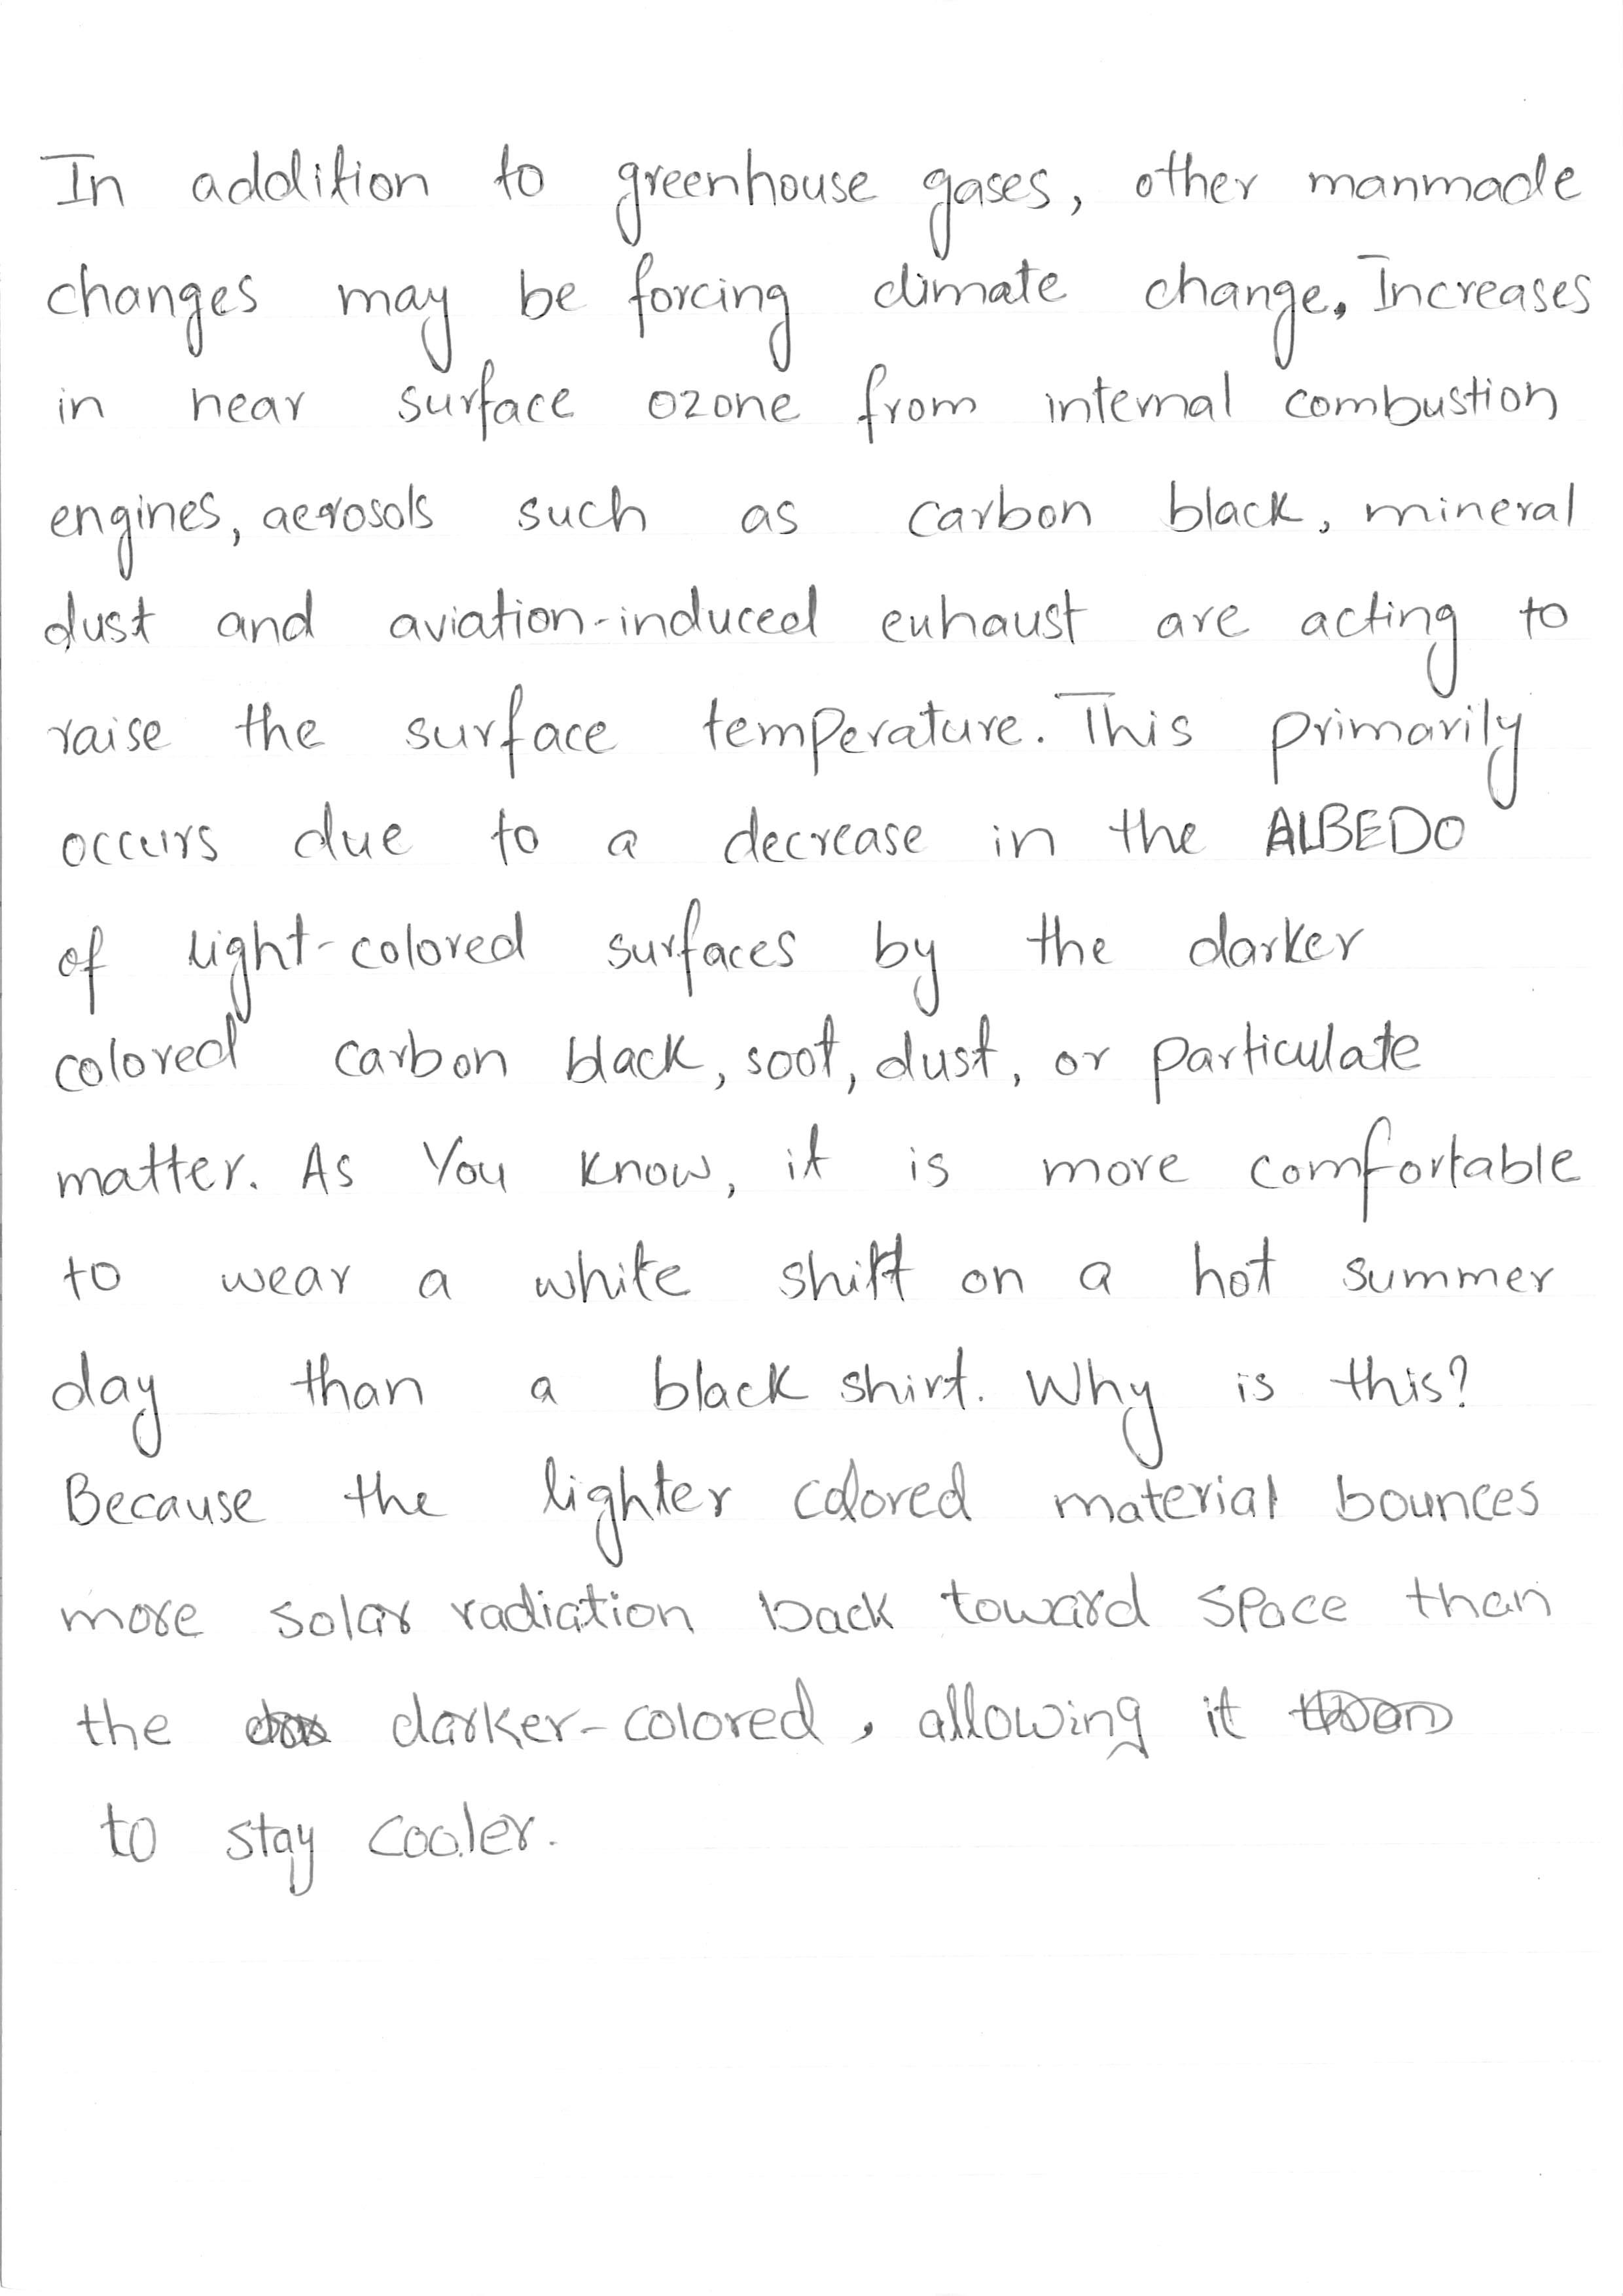 In addition to greenhouse gases, other manmade
changes may be forcing climate change. Increases
in near surface ozone from internal combustion
engines, aerosols such as carbon black, mineral
dust and aviation-induced exhaust are acting to
raise the surface temperature. This primarily
occurs due to a decrease in the ALBEDO
of light-colored surfaces by the darker
colored carbon black, soot, dust, or particulate
matter. As You know, it is more comfortable
to wear a white shirt on a hot summer
day than a black shirt. Why is this?
Because the lighter colored material bounces
more solar radiation back toward space than
the darker-colored, allowing it
to stay cooler.